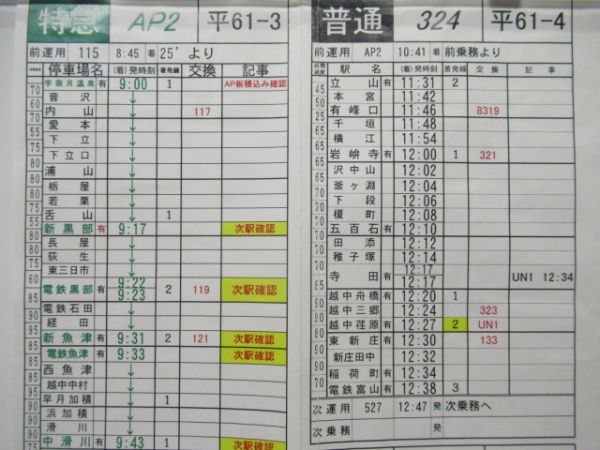 特急 AP2 平61-3
前運用 115 8:45 着 25' より
停車場名 (着)発時刻 着発線 交換 記事
宇奈月温泉 有 9:00 1 AP板積込み確認
70 音沢 ↓
内山 ↓ 117
愛本 ↓
下立 ↓
下立口 ↓
浦山 ↓
栃屋 ↓
若栗 ↓
舌山 ↓ 1
新黒部 有 9:17 次駅確認
長屋 ↓
荻生 ↓
東三日市 ↓
電鉄黒部 有 9:22 9:23 2 119 次駅確認
電鉄石田 ↓
経田 ↓
新魚津 有 9:31 2 121 次駅確認
電鉄魚津 有 9:33 次駅確認
西魚津 ↓
越中中村 ↓
早月加積 ↓ 1
浜加積 ↓
滑川 ↓
中滑川 有 9:43 1 次駅確認
普通 324 平61-4
前運用 AP2 10:41 着 前乗務より
駅名 (着)発時刻 着発線 交換 記事
立山 有 11:31 2
本宮 11:42
有峰口 11:46 8319
千垣 11:48
横江 11:54
岩峅寺 有 12:00 1 321
沢中山 12:02
釜ヶ淵 12:04
下段 12:06
榎町 12:08
五百石 有 12:10
田添 12:12
稚子塚 12:14
寺田 有 12:17 12:17 UN1 12:34
越中舟橋 有 12:20 1
越中三郷 12:24 323
越中荏原 有 12:27 2 UN1
東新庄 有 12:30 133
新庄田中 12:32
稲荷町 有 12:34
電鉄富山 有 12:38 3
次運用 527 12:47 発 次乗務へ
次乗務 発